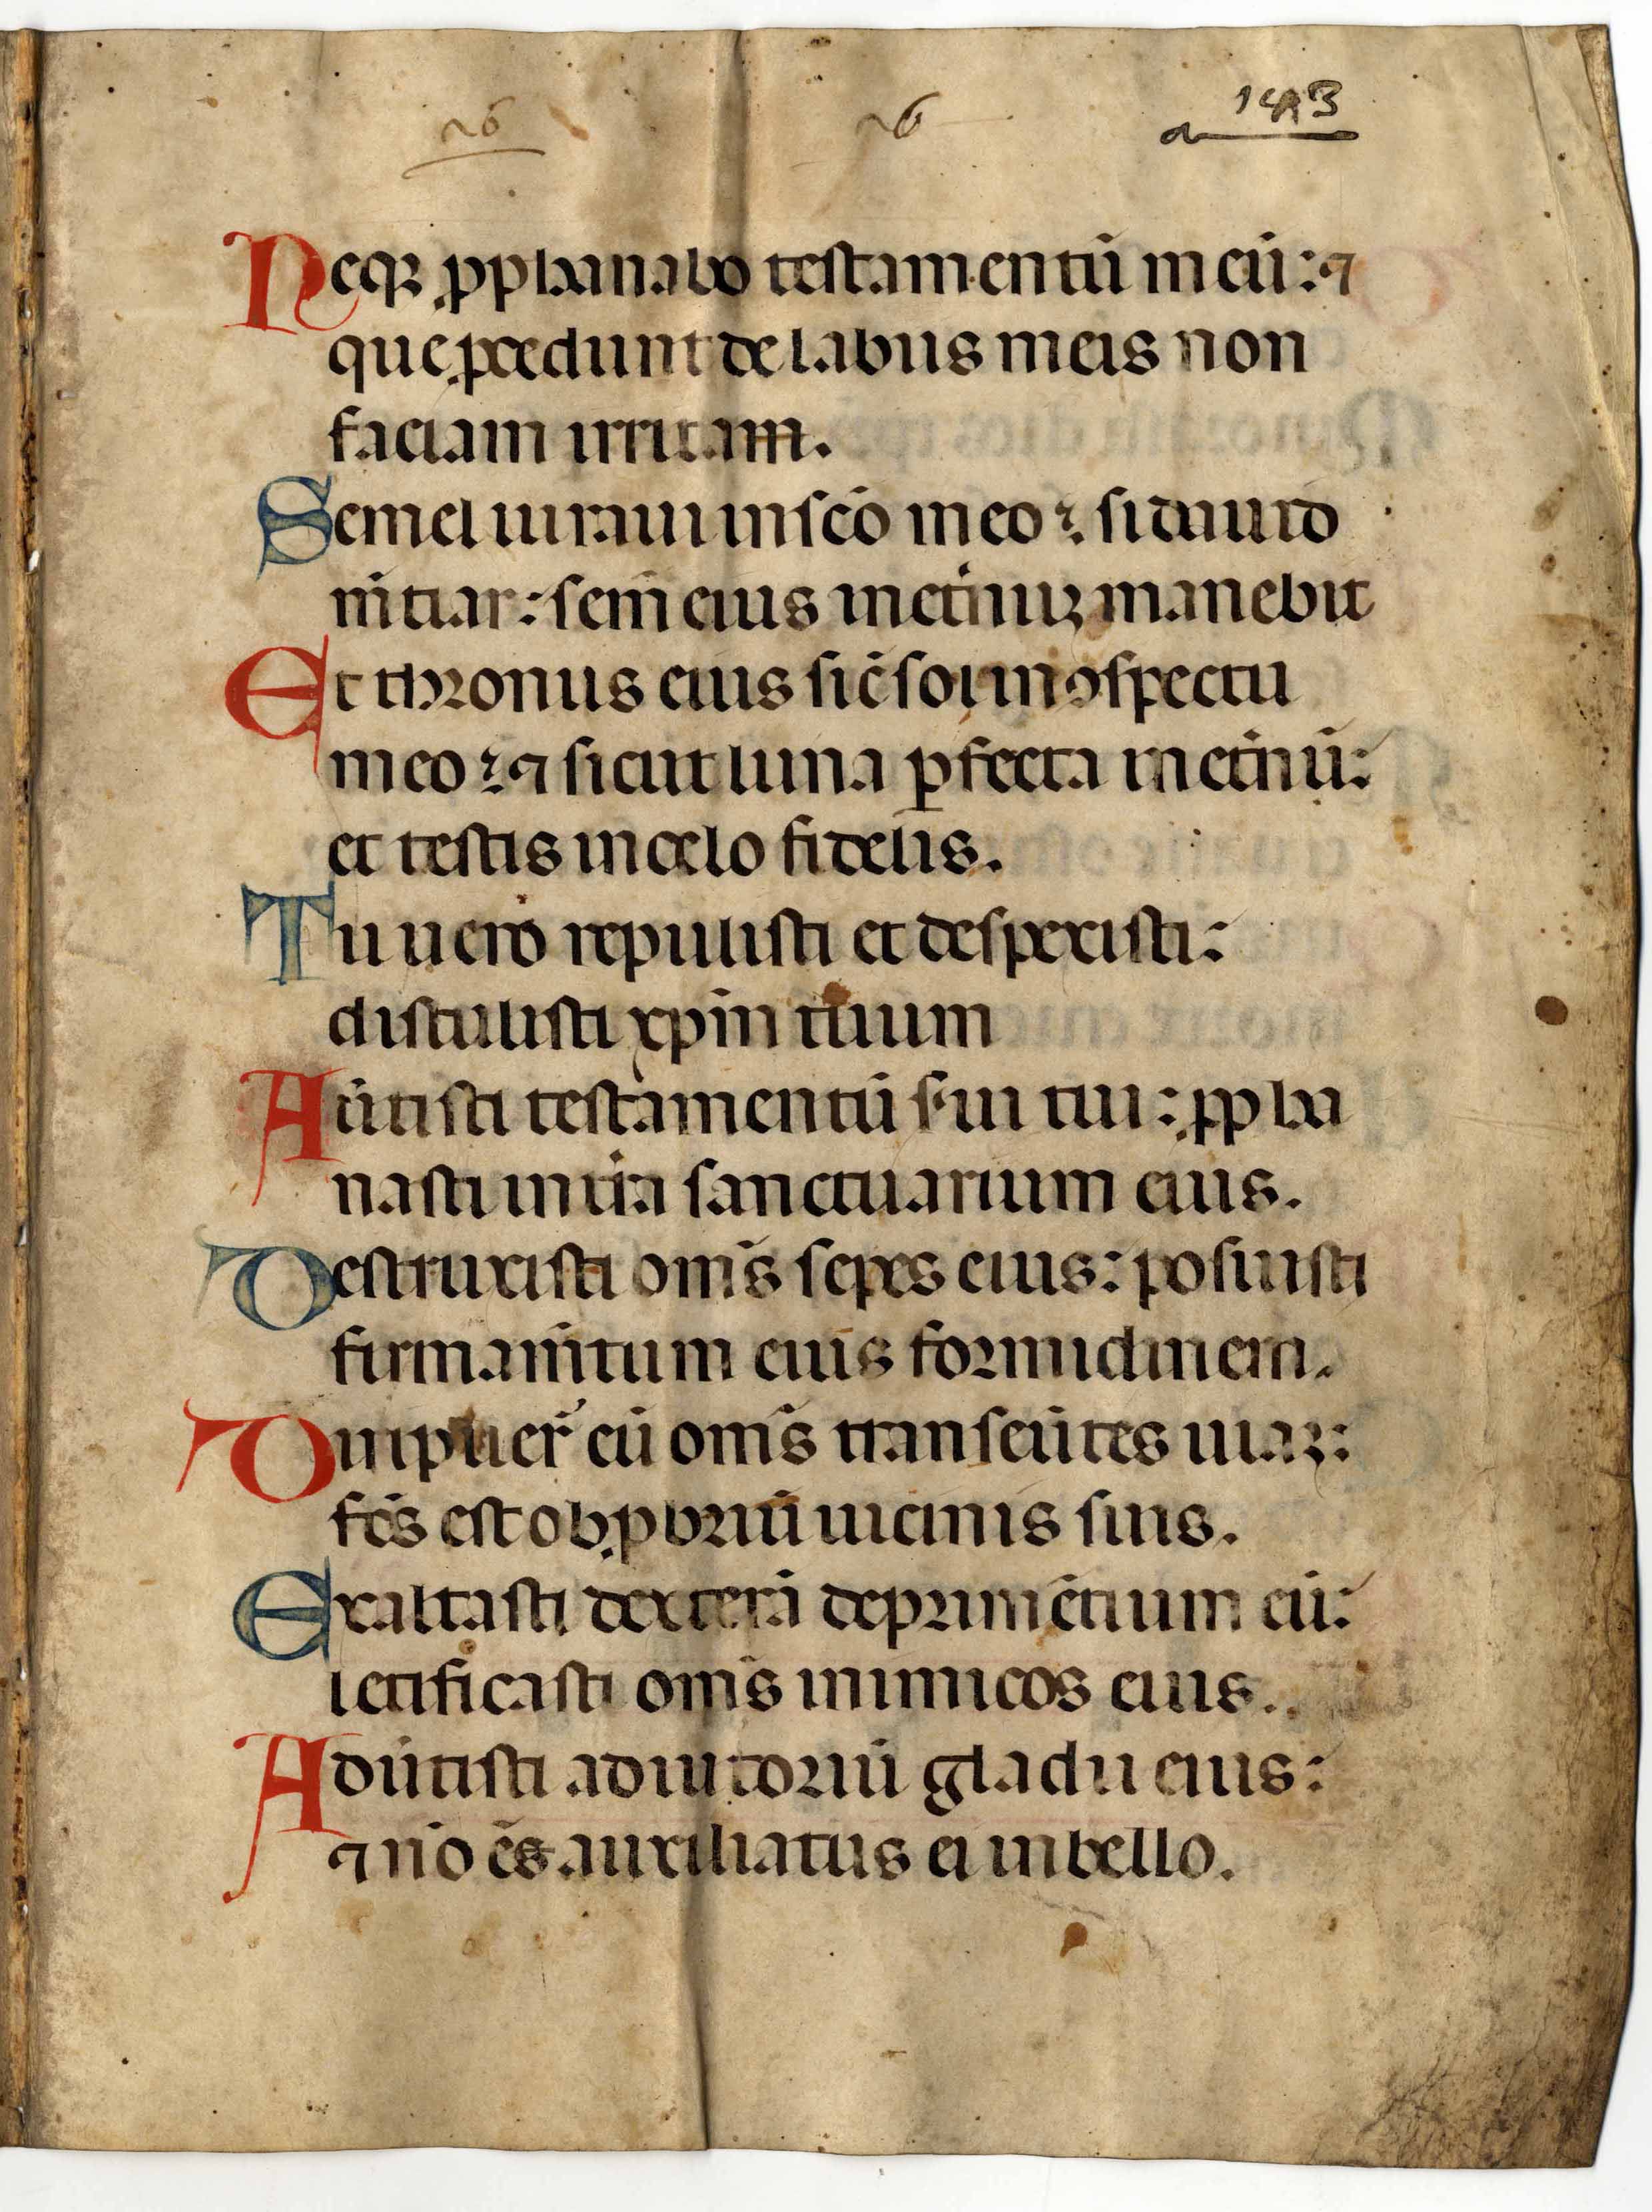 26 26 1493
Neqꝫ ꝓphanabo testamentū meū: ⁊
que ꝓcedunt de labiis meis non
faciam irritam.
Semel iuraui in scō meo ⁊ si dauid
m̄tiar: sem̄ eius in etn̄uꝫ manebit
Et thronus eius sic̄ sol in ꝯspectu
meo ⁊ ⁊ sicut luna ꝑfecta in etn̄ū:
et testis in celo fidelis.
Tu uero repulisti et despexisti:
distulisti xp̄m tuum
Auّtisti testamentū s̄ui tui: ꝓpha
nasti in tr̄a sanctuarium eius.
Destruxisti om̄s sepes eius: posuisti
firmam̄tum eius formidinem.
Diripuer̄ eū om̄s transeūtes uiaꝫ:
fc̄s est obꝓbriū uicinis suis.
Exaltasti dexterā deprimētium eū:
letificasti om̄s inimicos eius.
Aduّtisti adiutoriū gladii eius:
⁊ nō es auxiliatus ei in bello.